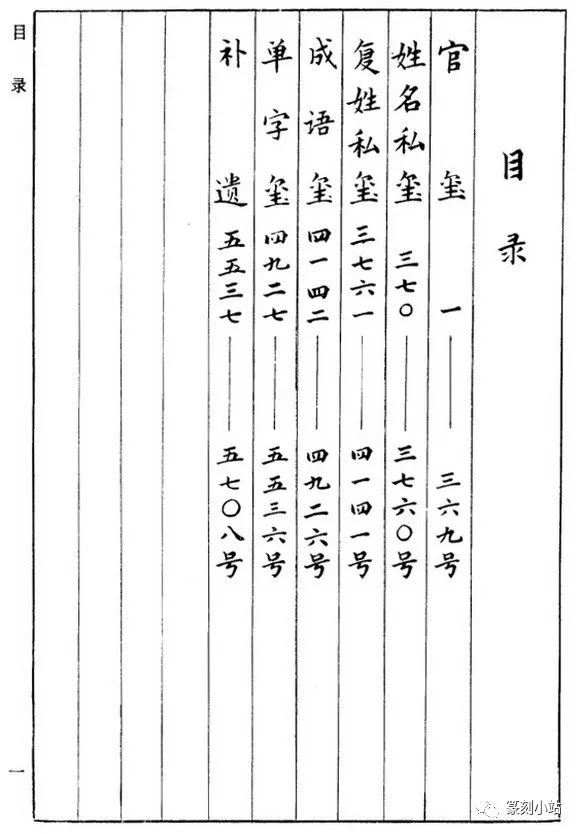 目录
官玺 一——三六九号
姓名私玺 三七〇——三七六〇号
复姓私玺 三七六一——四一四一号
成语玺 四一四二——四九二六号
单字玺 四九二七——五五三六号
补遗 五五三七——五七〇八号
目录
一
篆刻小站